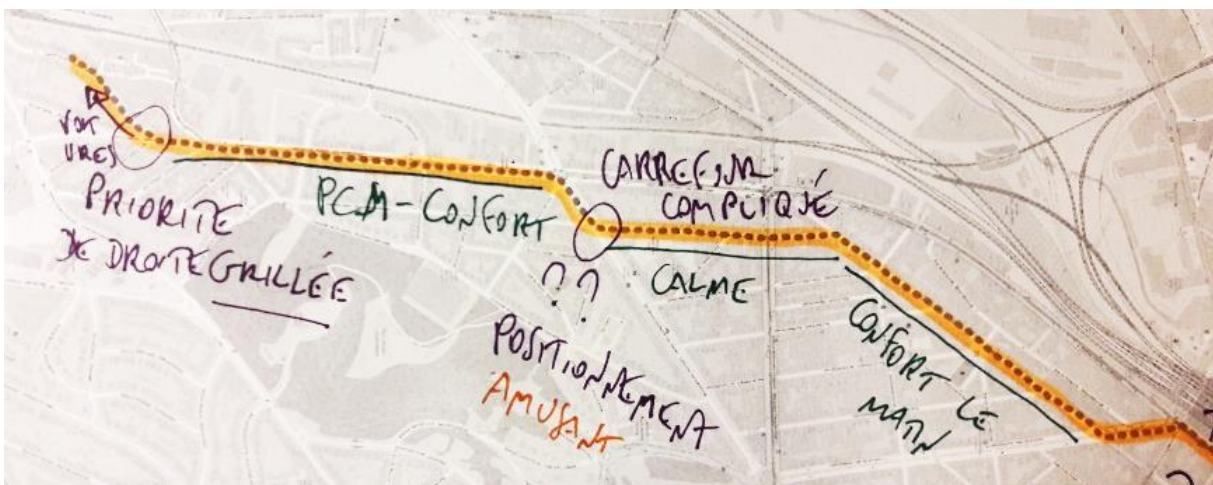 VOIT
URES
PRIORITÉ
DE DROITE GRILLÉE
PCM-CONFORT
CARREFOUR
COMPLIQUÉ
??
POSITIONNEMENT
AMUSANT
CALME
CONFORT LE
MATIN